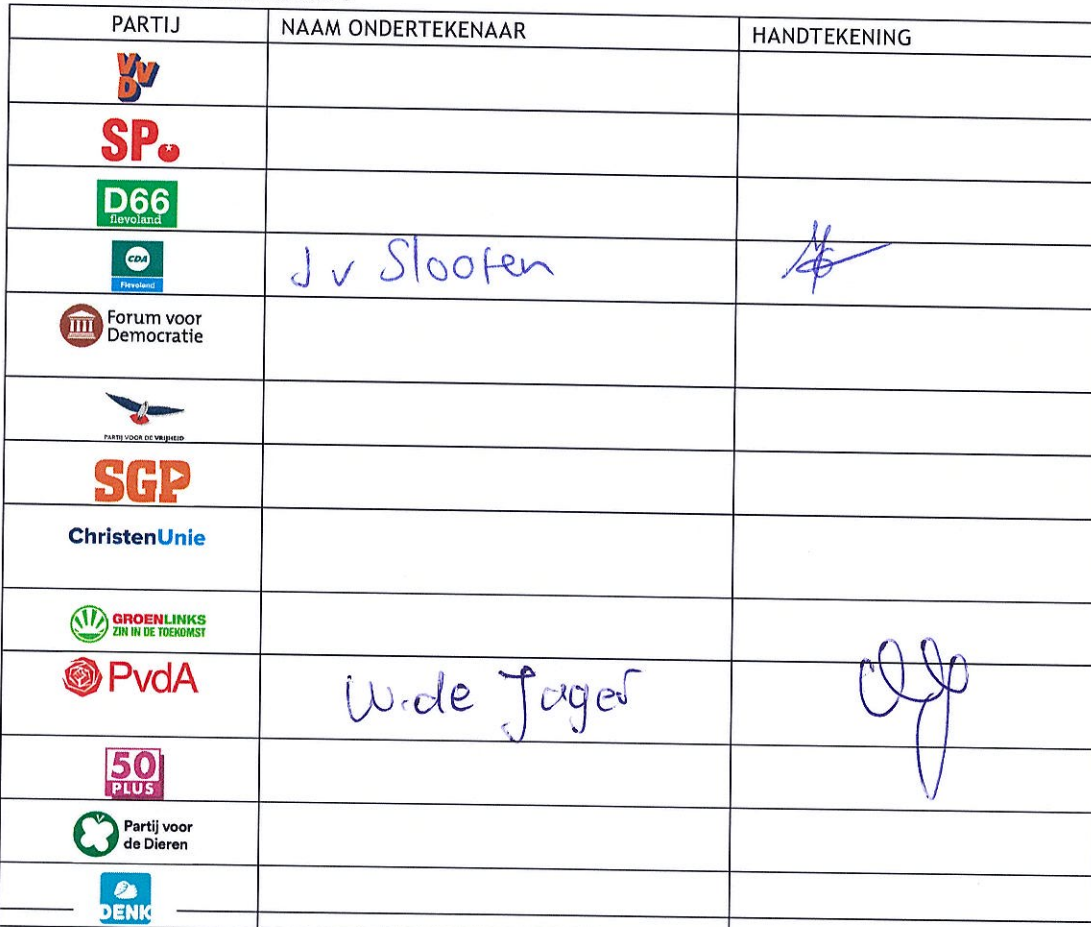 PARTIJ NAAM ONDERTEKENAAR HANDTEKENING
VVD
SP.
D66
flevoland
CDA
Flevoland
J v Slooten
Forum voor
Democratie
PARTIJ VOOR DE VRIJHEID
SGP
ChristenUnie
GROENLINKS
ZIN IN DE TOEKOMST
PvdA W. de Jager
50
PLUS
Partij voor
de Dieren
DENK